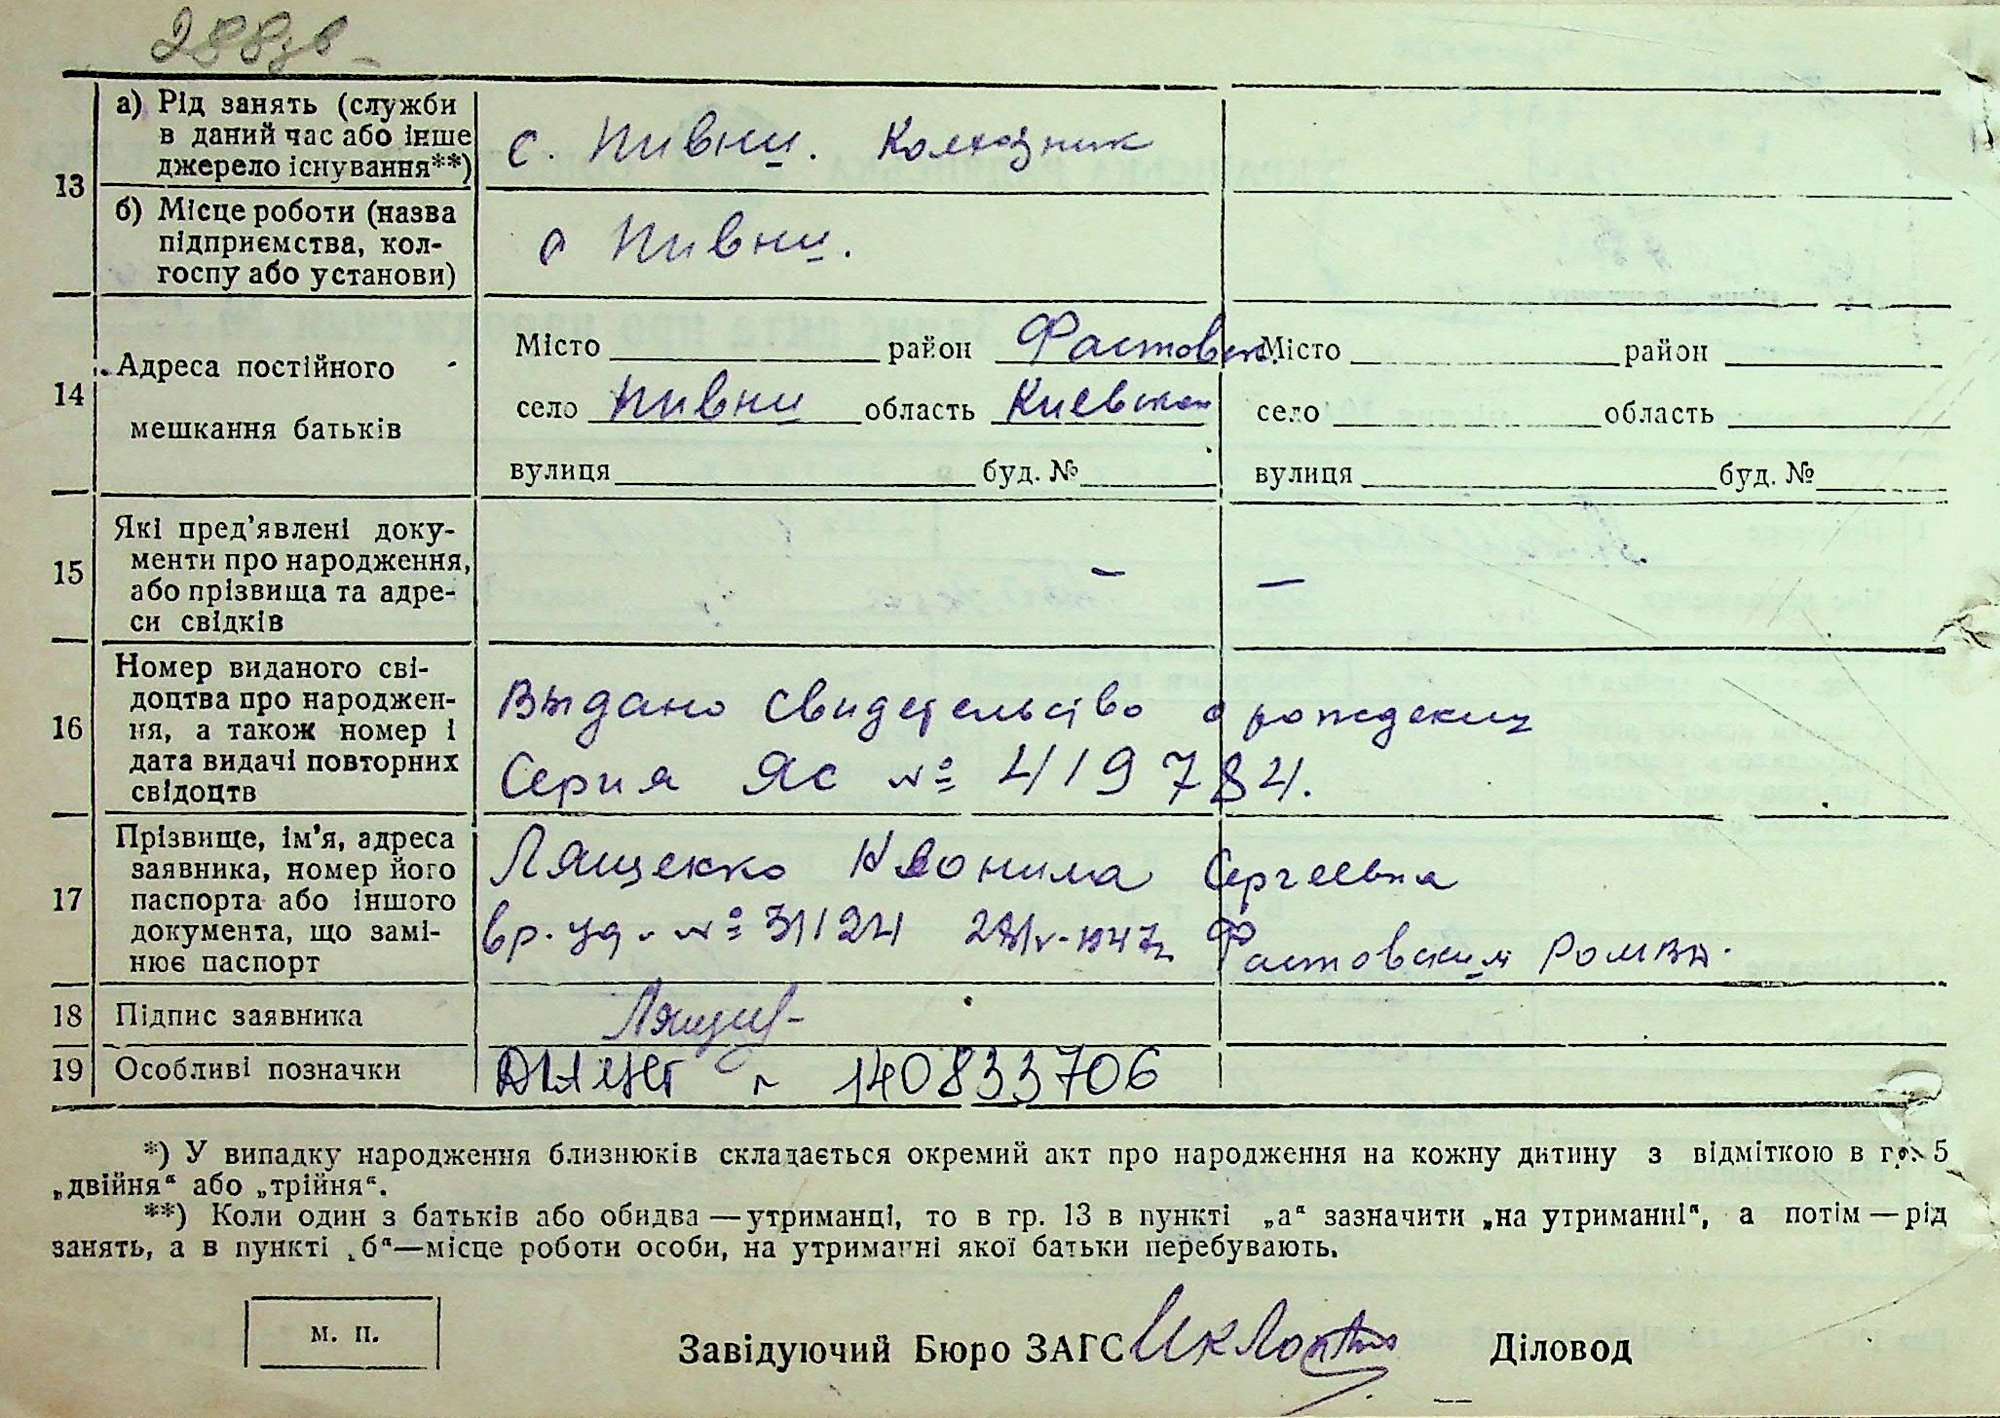 288зв
13
а) Рід занять (служби
в даний час або інше
джерело існування**)
с. Пивни. Колхозник
б) Місце роботи (назва
підприємства, кол-
госпу або установи)
с Пивни.
14
Адреса постійного
мешкання батьків
Місто район Фастовск.
село Пивни область Киевская
вулиця буд. №
Місто район
село область
вулиця буд. №
15
Які пред’явлені доку-
менти про народження,
або прізвища та адре-
си свідків
— —
16
Номер виданого сві-
доцтва про народжен-
ня, а також номер і
дата видачі повторних
свідоцтв
Выдано свидетельство о рождении
Серия ЯС № 419784.
17
Прізвище, ім’я, адреса
заявника, номер його
паспорта або іншого
документа, що замі-
нює паспорт
Лященко Неонила Сергеевна
вр. уд. № 31124 Фастовским РОМВД.
18
Підпис заявника
19
Особливі позначки
140833706
*) У випадку народження близнюків складається окремий акт про народження на кожну дитину з відміткою в гр. 5
„двійня“ або „трійня“.
**) Коли один з батьків або обидва—утриманці, то в гр. 13 в пункті „а“ зазначити „на утриманні“, а потім—рід
занять, а в пункті „б“—місце роботи особи, на утриманні якої батьки перебувають.
м. п.
Завідуючий Бюро ЗАГС
Діловод